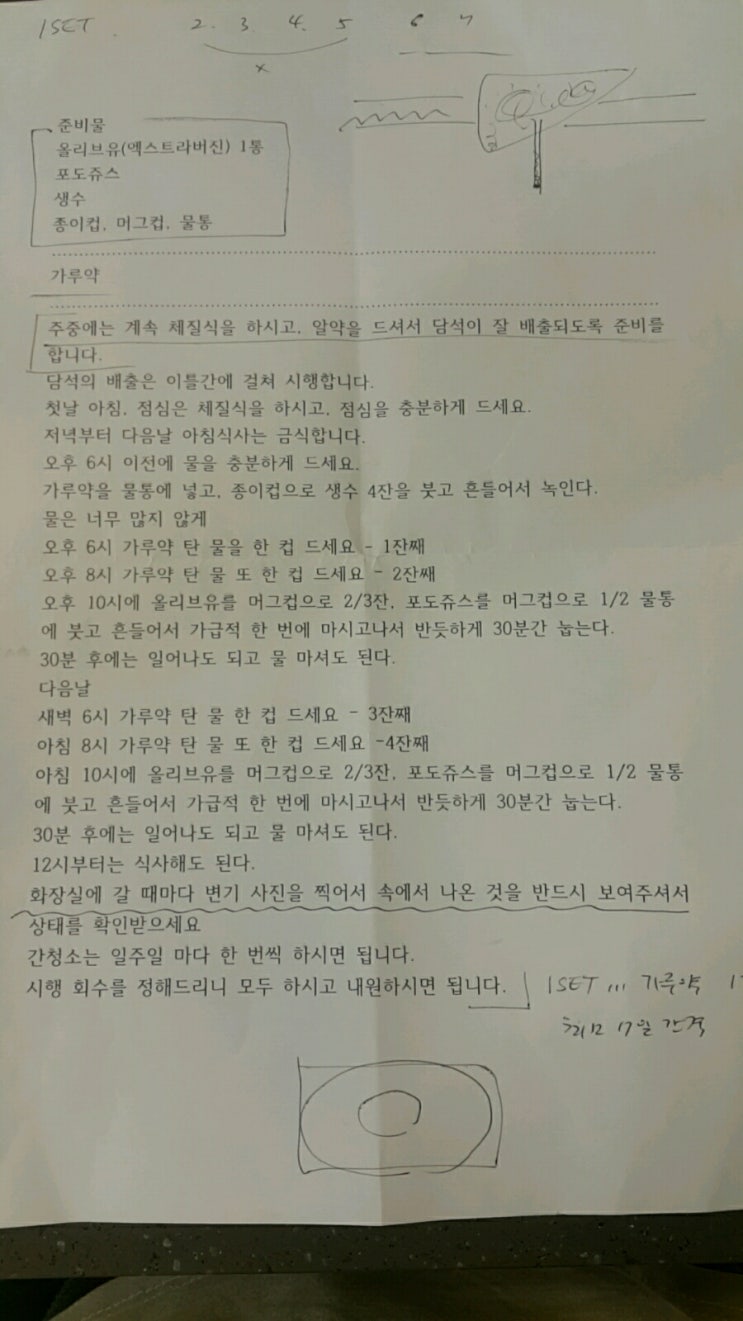 1SET 2. 3. 4. 5 6 7
x
준비물
올리브유(엑스트라버진) 1통
포도쥬스
생수
종이컵, 머그컵, 물통
가루약
주중에는 계속 체질식을 하시고, 알약을 드셔서 담석이 잘 배출되도록 준비를
합니다.
담석의 배출은 이틀간에 걸쳐 시행합니다.
첫날 아침, 점심은 체질식을 하시고, 점심을 충분하게 드세요.
저녁부터 다음날 아침식사는 금식합니다.
오후 6시 이전에 물을 충분하게 드세요.
가루약을 물통에 넣고, 종이컵으로 생수 4잔을 붓고 흔들어서 녹인다.
물은 너무 많지 않게
오후 6시 가루약 탄 물을 한 컵 드세요 - 1잔째
오후 8시 가루약 탄 물 또 한 컵 드세요 - 2잔째
오후 10시에 올리브유를 머그컵으로 2/3잔, 포도쥬스를 머그컵으로 1/2 물통
에 붓고 흔들어서 가급적 한 번에 마시고나서 반듯하게 30분간 눕는다.
30분 후에는 일어나도 되고 물 마셔도 된다.
다음날
새벽 6시 가루약 탄 물 한 컵 드세요 - 3잔째
아침 8시 가루약 탄 물 또 한 컵 드세요 -4잔째
아침 10시에 올리브유를 머그컵으로 2/3잔, 포도쥬스를 머그컵으로 1/2 물통
에 붓고 흔들어서 가급적 한 번에 마시고나서 반듯하게 30분간 눕는다.
30분 후에는 일어나도 되고 물 마셔도 된다.
12시부터는 식사해도 된다.
화장실에 갈 때마다 변기 사진을 찍어서 속에서 나온 것을 반드시 보여주셔서
상태를 확인받으세요
간청소는 일주일 마다 한 번씩 하시면 됩니다.
시행 회수를 정해드리니 모두 하시고 내원하시면 됩니다. 1SET ... 가루약
간격